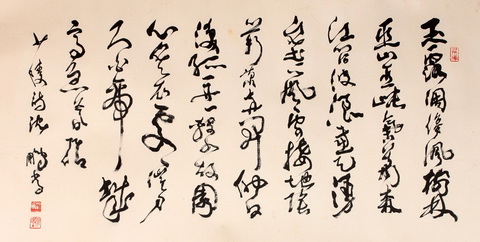 玉露凋傷楓樹林
巫山巫峽氣蕭森
江間波浪兼天湧
塞上風雲接地陰
叢菊兩開他日
淚孤舟一繫故園
心寒衣處處催刀
尺白帝城
高急暮砧
少陵詩沈鵬書